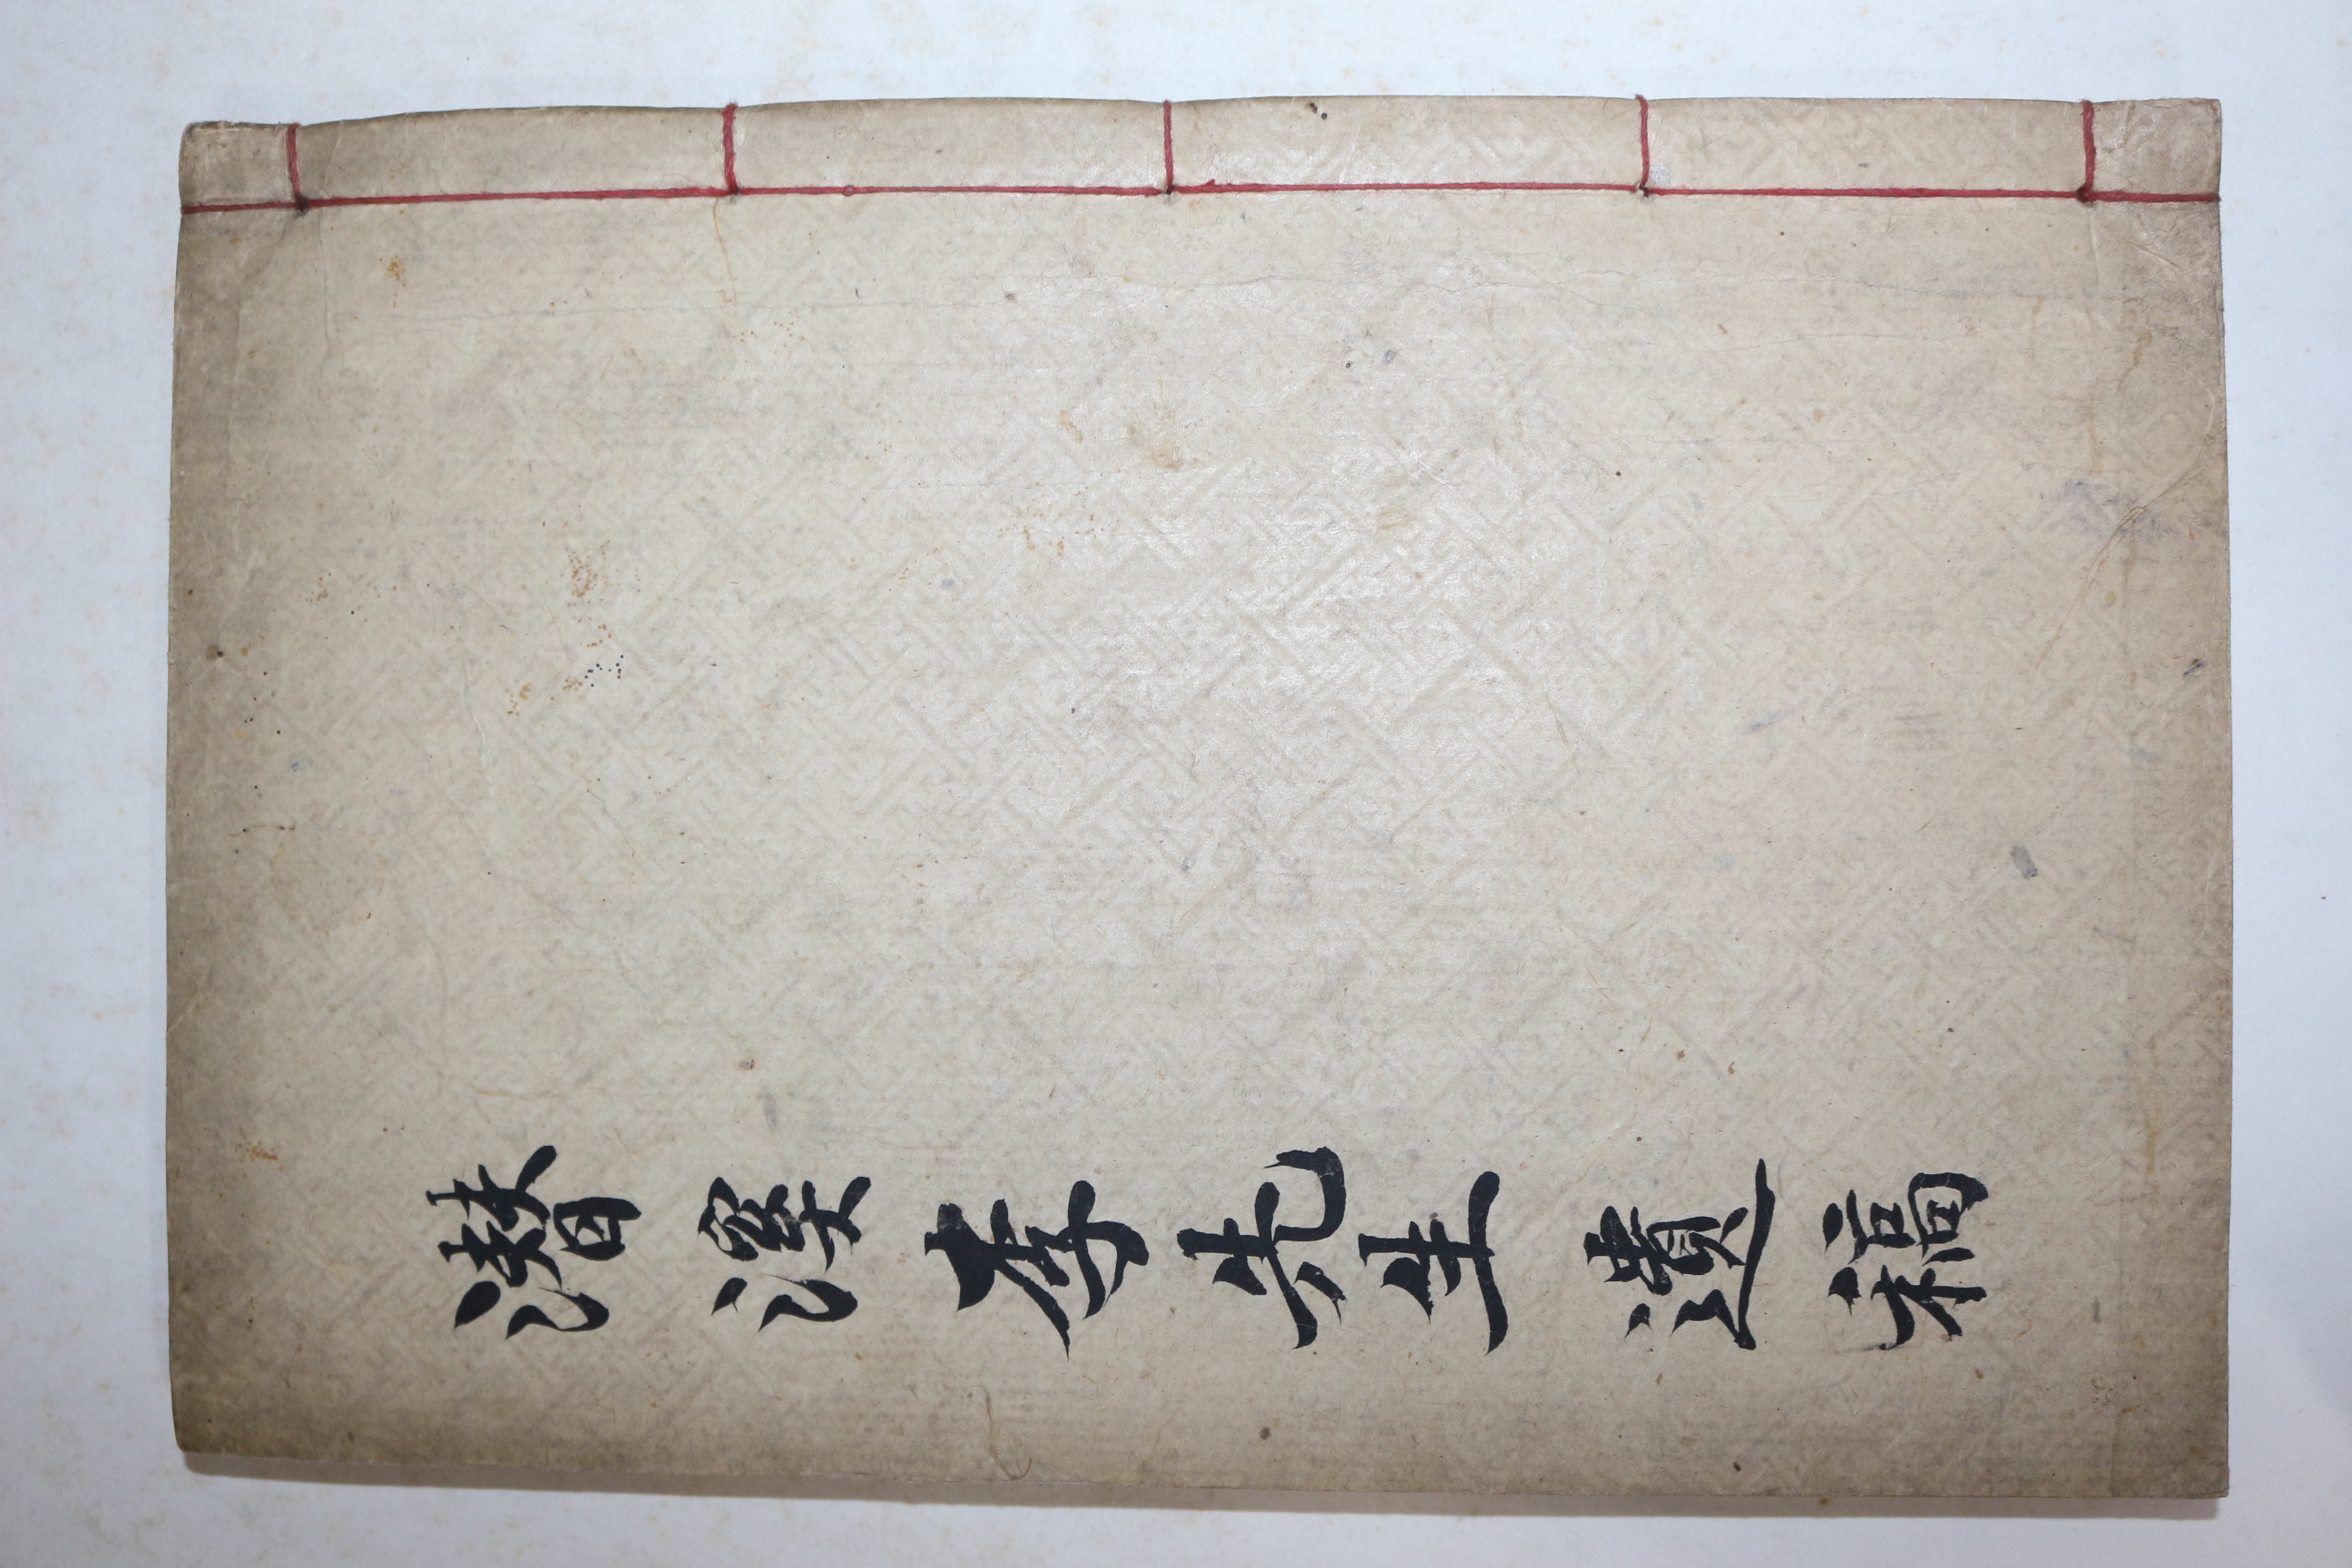 潜溪李先生遺稿